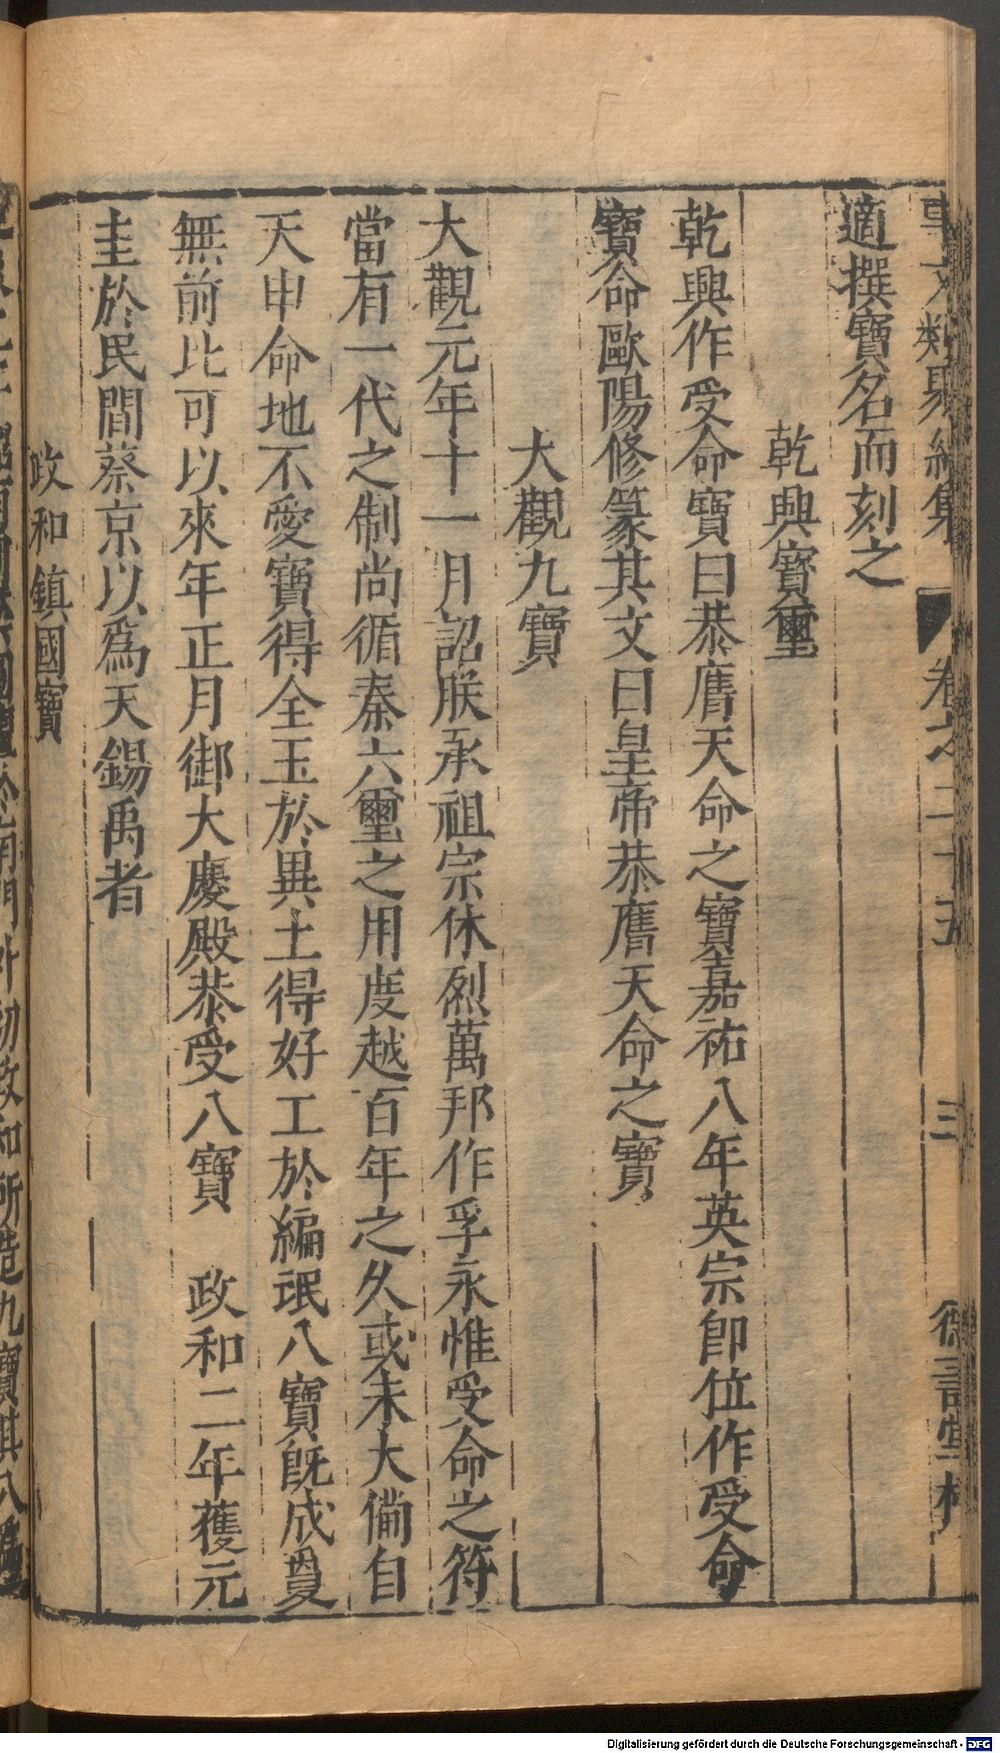 事文類聚續集 卷之二十五 三 德壽堂梓
適撰寶名而刻之
乾興寳璽
乾興作受命寶曰恭膺天命之寶嘉祐八年英宗即位作受命
寶命歐陽修篆其文曰皇帝恭膺天命之寶
大觀九寶
大觀元年十一月詔朕承祖宗休烈萬邦作孚永惟受命之符
當有一代之制尚循秦六璽之用度越百年之久或未大備自
天申命地不愛寶得全玉於異土得好工於編氓八寶既成敻
無前比可以來年正月御大慶殿恭受八寶 政和二年獲元
圭於民間蔡京以爲天錫禹者
政和鎮國寶
外初政和所造九寶其八
Digitalisierung gefördert durch die Deutsche Forschungsgemeinschaft - DFG